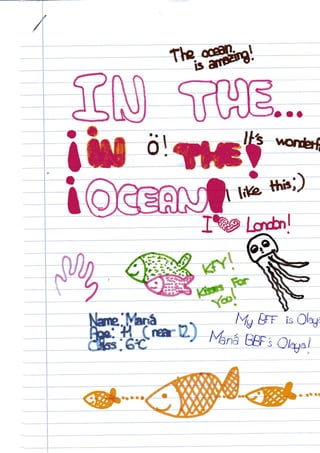 The ocean
is amazing!
IN THE...
¡IN Ö! THE!
It's
¡OCEAN!
I like this;)
I London!
KFY!
Kisses For
You!
Name: María
Age: 11 (near 12)
Class: 6ºC
My BFF is
María BBF's Olaya!